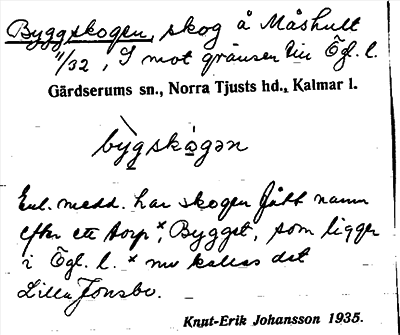 Byggskogen, skog å Måshult
11/32, I mot gränsen till Ögl. l.
Gärdserums sn., Norra Tjusts hd., Kalmar l.
bỳgskↄ̀gən
Enl. medd. har skogen fått namn
efter ett torp ˣ, Bygget, som ligger
i Ögl. l. ˣ nu kallas det
Lilla Jonsbo.
Knut-Erik Johansson 1935.